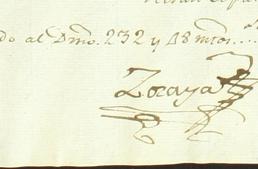 do al Dmo. 232 y 18 mros....
Zoraya